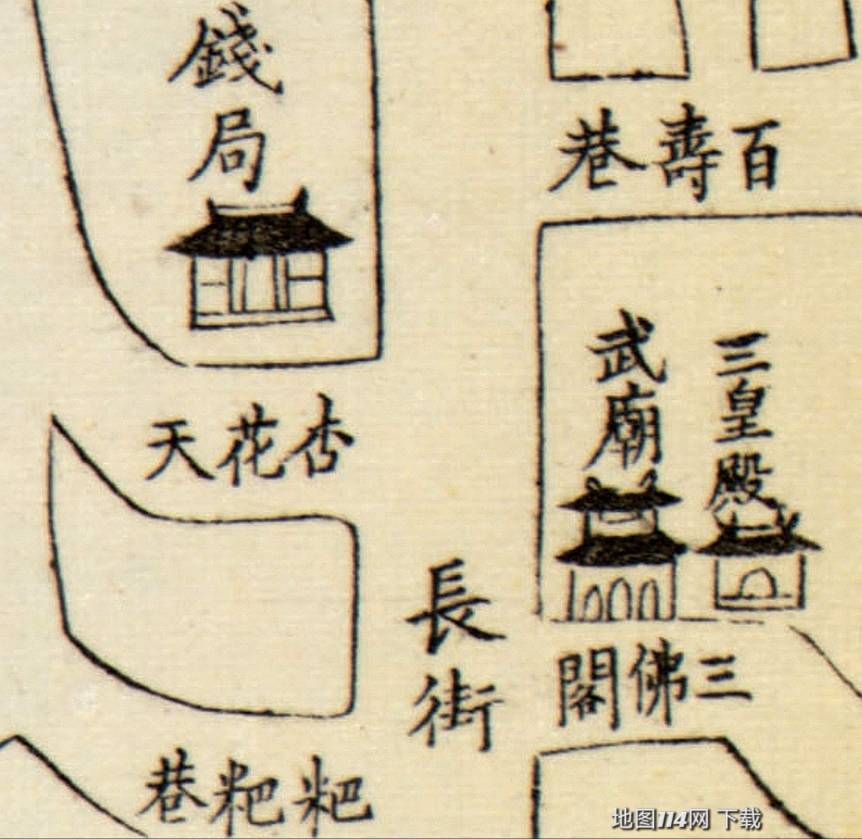 錢局
百壽巷
武廟
三皇殿
杏花天
長街
三佛閣
粑粑巷
地图114网 下载